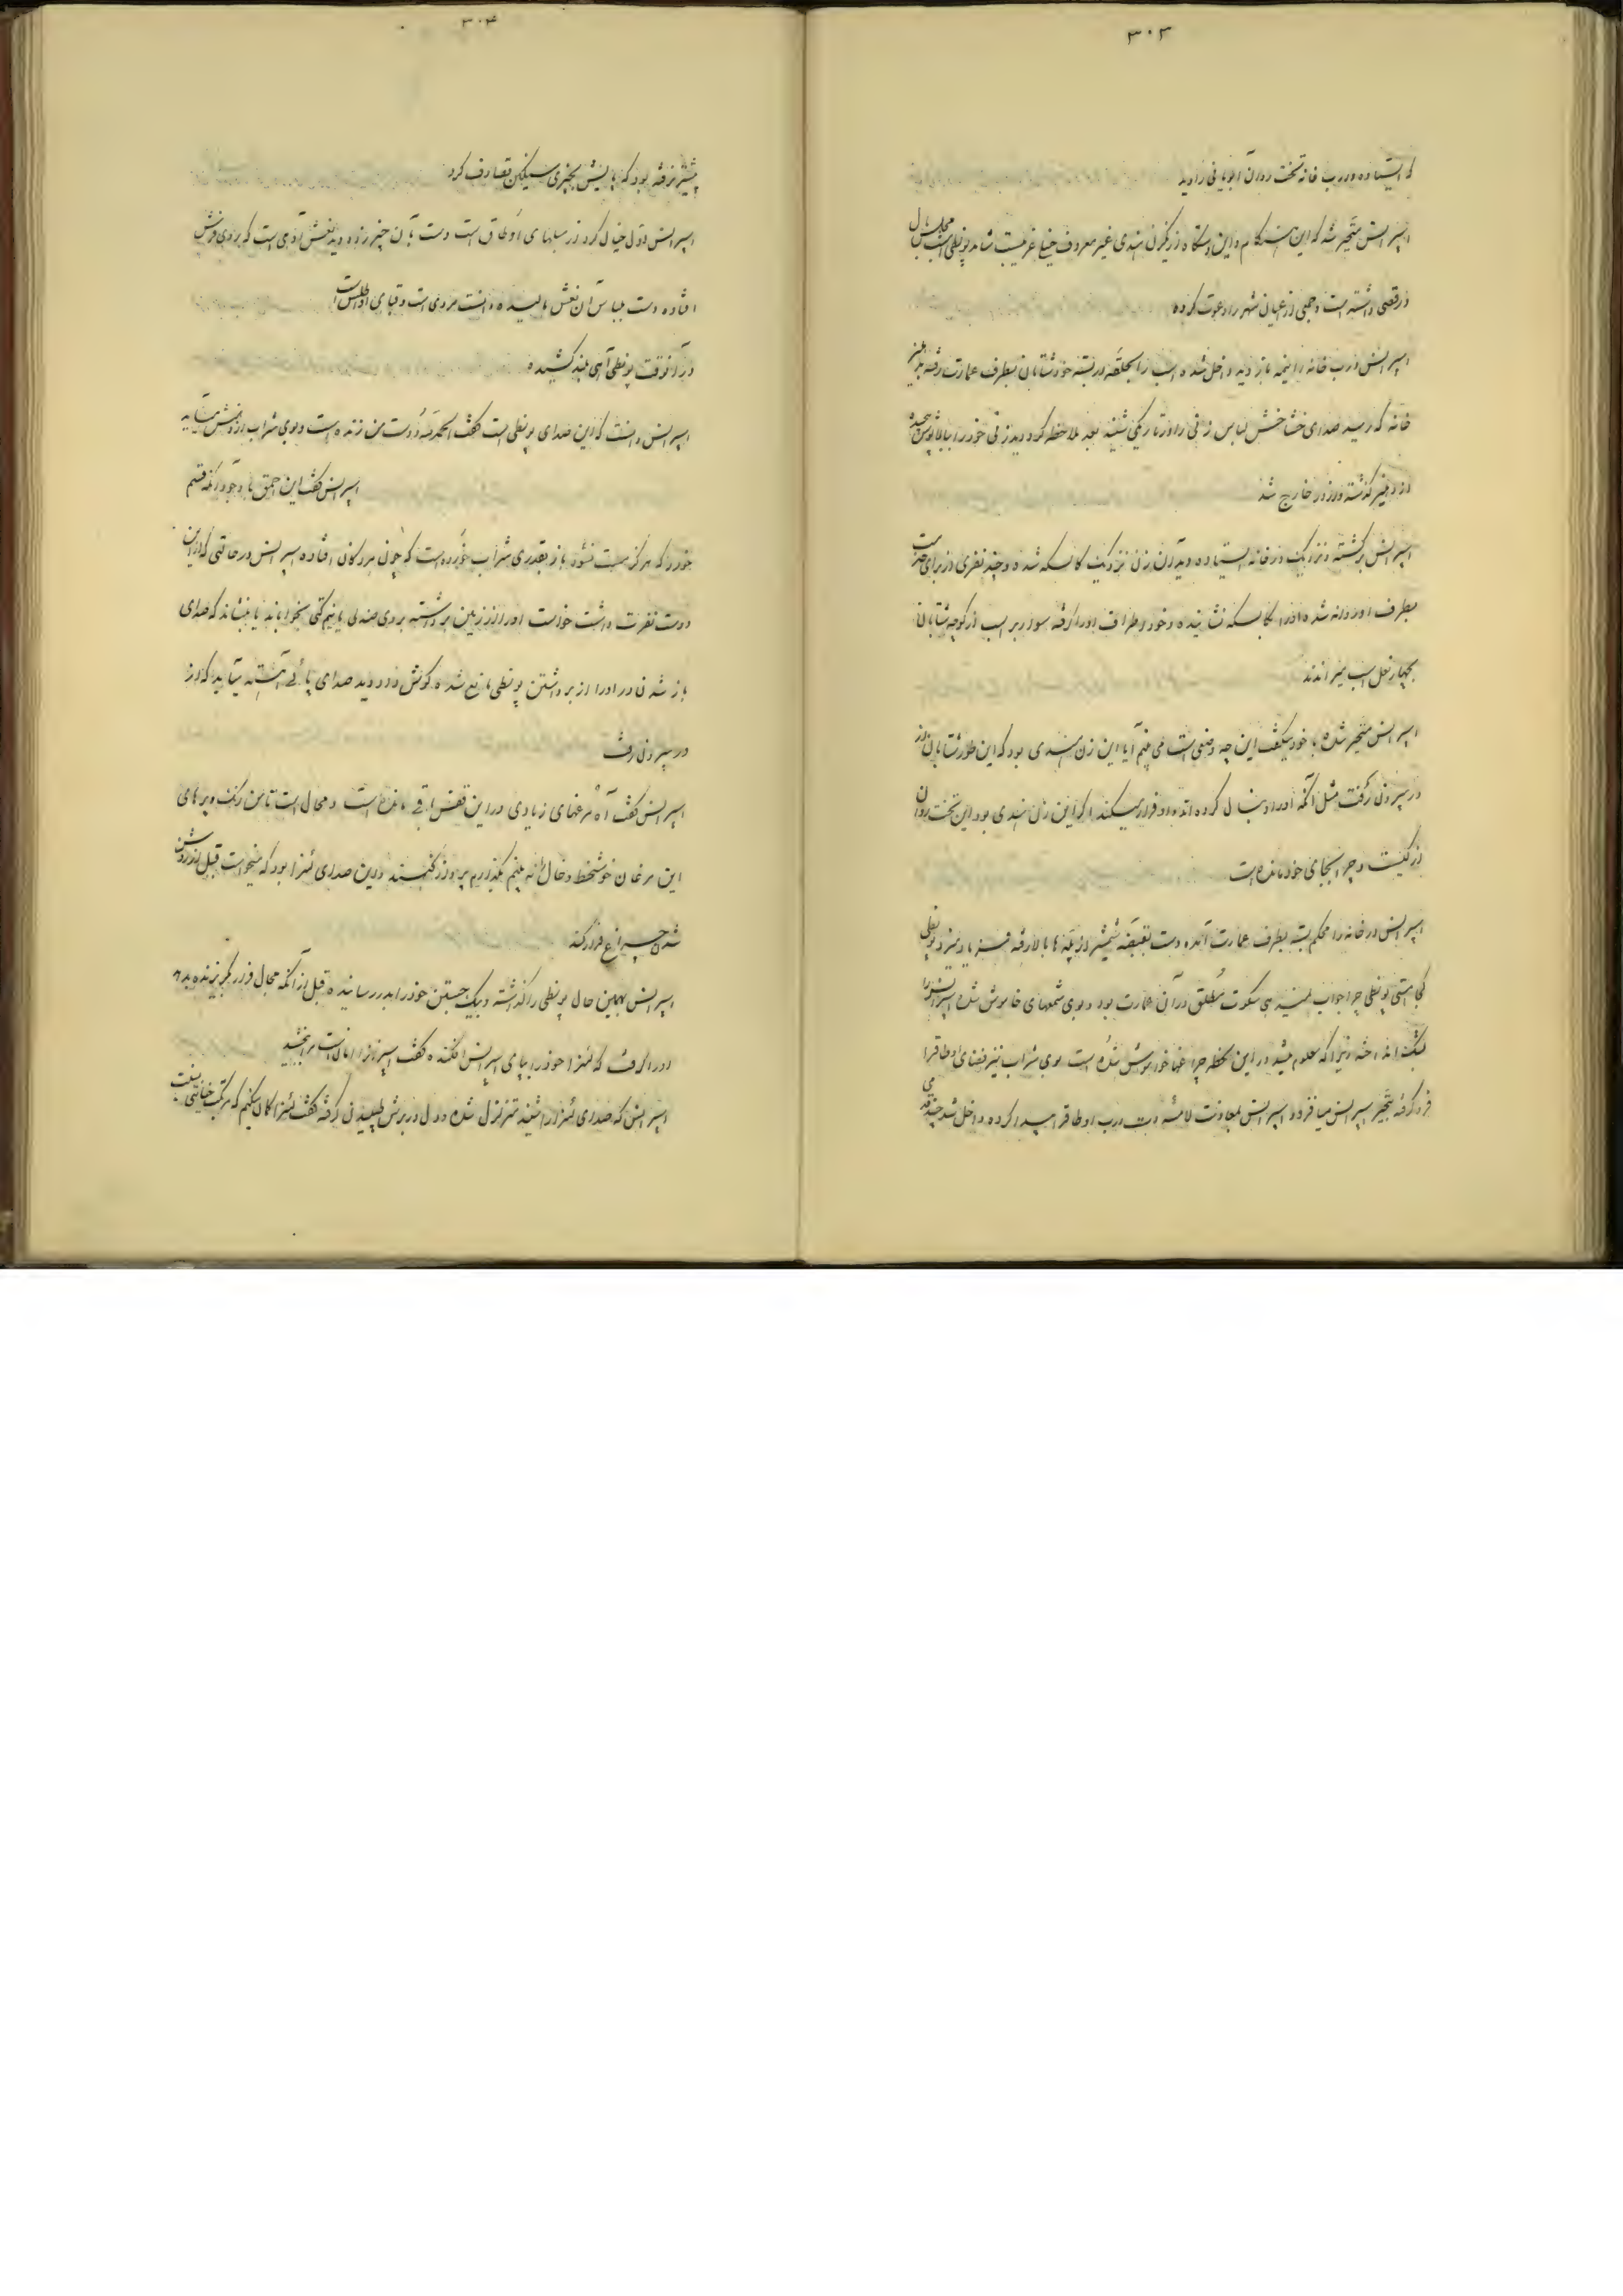 ۳۰۳
که ایستاده درب خانه تخت روان ابوبانی را دید
اسپرانس متحیر شد که این هنگام و این دستگاه از یکزن هندی غیر معروف خیلی غریبست شاید پونطی امشب مجلس بال
و رقصی داشته است و جمعی از اعیان شهر را دعوت کرده
اسپرانس درب خانه را نیمه باز دید داخل شده اسب را بحلقه در بسته خود شتابان بطرف عمارت رفته بدهلیز
خانه که رسید صدای خشاخش لباس زنی را در تاریکی شنید بعد ملاحظه کرد دید زنی خود را ببالاپوش پیچیده
از دهلیز گذشته و از در خارج شد
اسپرانس برگشته و نزدیک در خانه ایستاده دید آن زن نزدیک کالسکه شده و چند نفری از برای خدمت
بطرف او روانه شده او را بکالسکه نشانیده و خود اطراف او را گرفته سوار بر اسب از کوچه شتابان
بچهار نعل اسب میراندند
اسپرانس متحیر شده با خود میگفت این چه وضعی است می بینم آیا این زن هندی بود که این طور شتابان از
در بیرون رفت مثل آنکه او را دنبال کرده اند و او فرار میکند اگر این زن هندی بود این تخت روان
از کیست و چرا اینجای خود مانده است
اسپرانس در خانه را محکم بسته بطرف عمارت آمده دست بقبضه شمشیر از پله ها بالا رفته فریاد میزد پونطی
کجا هستی پونطی چرا جواب نمیدهی سکوت مطلق در آن عمارت بود و بوی شمعهای خاموش شده اسپرانس را
بشک انداخته زیرا که معلوم میشد در این لحظه چراغها خاموش شده است بوی شراب نیز فضای اوطاق را
فرو گرفته بتحیر اسپرانس میافزود اسپرانس بمعاونت لامسه دست درب اوطاق را پیدا کرده داخل شد چند قدمی
۳۰۴
پیشتر نرفته بود که پایش بچیزی سنگین تصادف کرد
اسپرانس اول خیال کرد از مبلهای اوطاق است دست بآن چیز زده دید نعش آدمی است که بروی فرش
افتاده دست بلباس آن نعش مالیده دانست مردی است و قبای او اطلس است
در آنوقت پونطی آهی بلند کشیده
اسپرانس دانست که این صدای پونطی است گفت الحمدلله دوست من زنده است و بوی شراب از دهنش میآید
اسپرانس گفت این احمق با وجود آنکه قسم
خورد که هرگز مست نشود باز بقدری شراب خورده است که چون مردگان افتاده اسپرانس در حالتی که از این
دوست نفرت داشت خواست او را از زمین برداشته بروی صندلی یا نیم کتی بخواباند یا بنشاند که صدای
باز شدن در او را از برداشتن پونطی مانع شده گوش داد دید صدای پائی آهسته میآید که از
در بیرون رفت
اسپرانس گفت آه مرغهای زیادی در این قفس باقی مانده است و محال است تا من رنگ و پرهای
این مرغان خوشخط و خال را نبینم بگذارم پرواز کنند و این صدای لئنزا بود که میخواست قبل از روشن
شدن چراغ فرار کند
اسپرانس بهمین حال پونطی را گذاشته و بیک جستن خود را بدر رسانیده قبل از آنکه مجال فرار بگریزنده بدهد
او را گرفت که لئنزا خود را بپای اسپرانس افکنده گفت اسپرانزا امان است مرا ببخشید
اسپرانس که صدای لئنزا را شنید متزلزل شده و دل در برش طپیدن گرفته گفت لئنزا گمان میکنم که مرتکب خیانتی